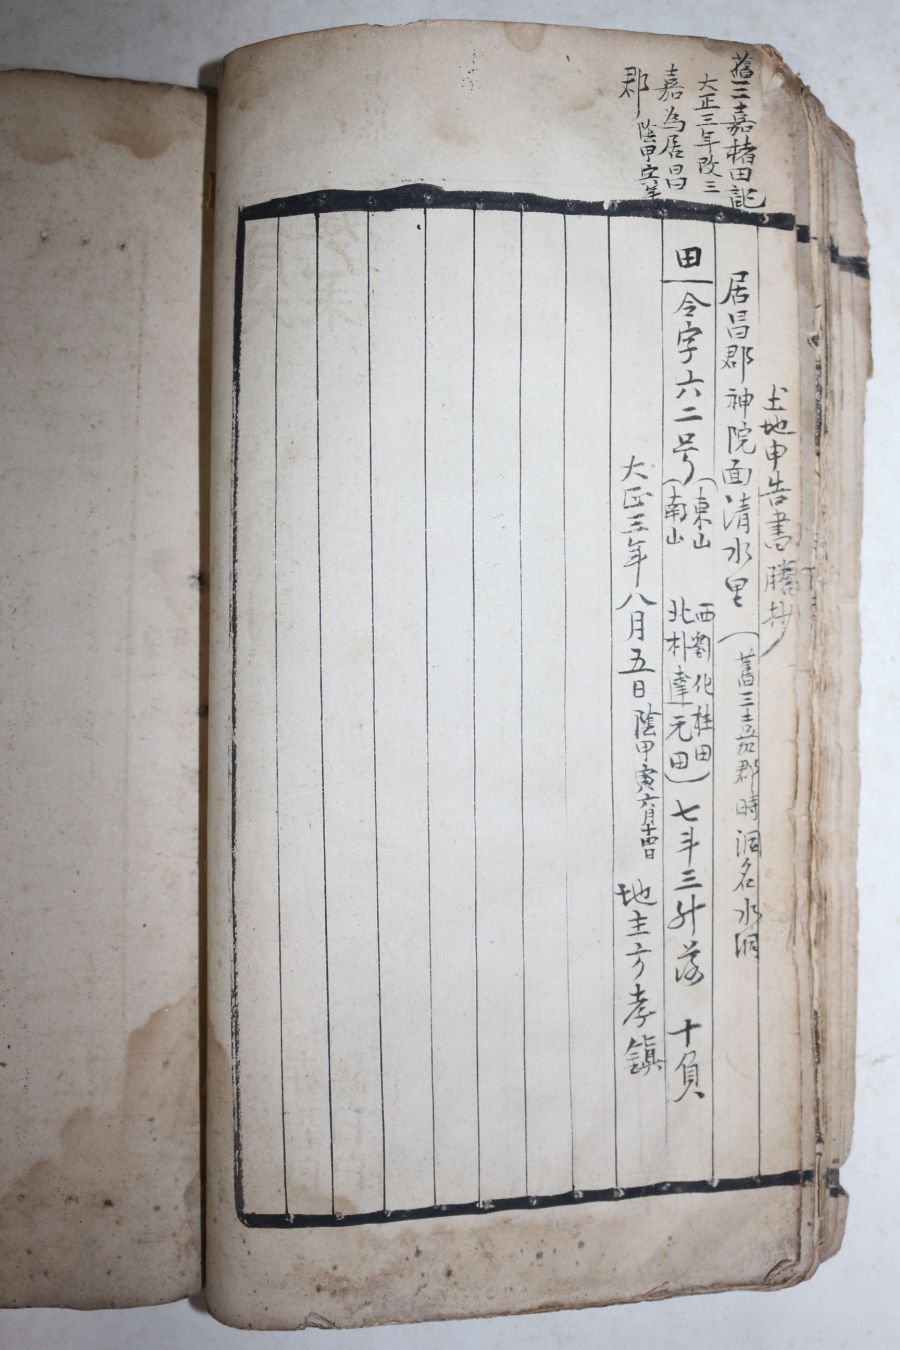 舊三嘉楮田記
大正三年改三
嘉為居昌
郡陰甲寅年
土地申告書謄抄
居昌郡神院面清水里(舊三嘉郡時洞名水洞
田一令字六二号(東山 西劉化桂田
南山 北朴達元田)七斗三升落 十負
大正三年八月五日陰甲寅六月十四日 地主方孝鎭